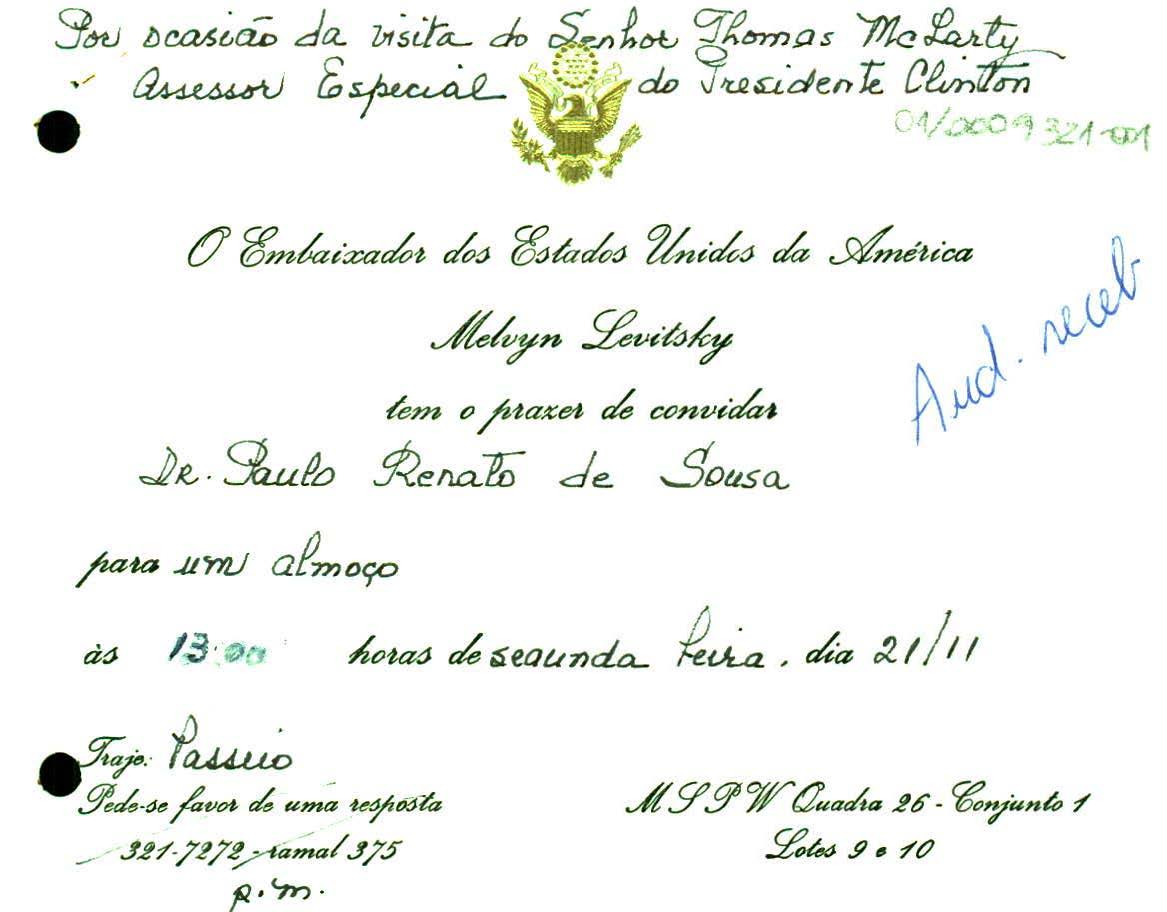 Por ocasião da visita do Senhor Thomas McLarty
Assessor Especial do Presidente Clinton
01/0009321-001
O Embaixador dos Estados Unidos da América
Melvyn Levitsky
Aud. receb
tem o prazer de convidar
Dr. Paulo Renato de Sousa
para um almoço
às 13:00 horas de segunda feira, dia 21/11
Traje: Passeio
Pede-se favor de uma resposta
321-7272 - ramal 375
p.m.
M S P W Quadra 26 - Conjunto 1
Lotes 9 e 10